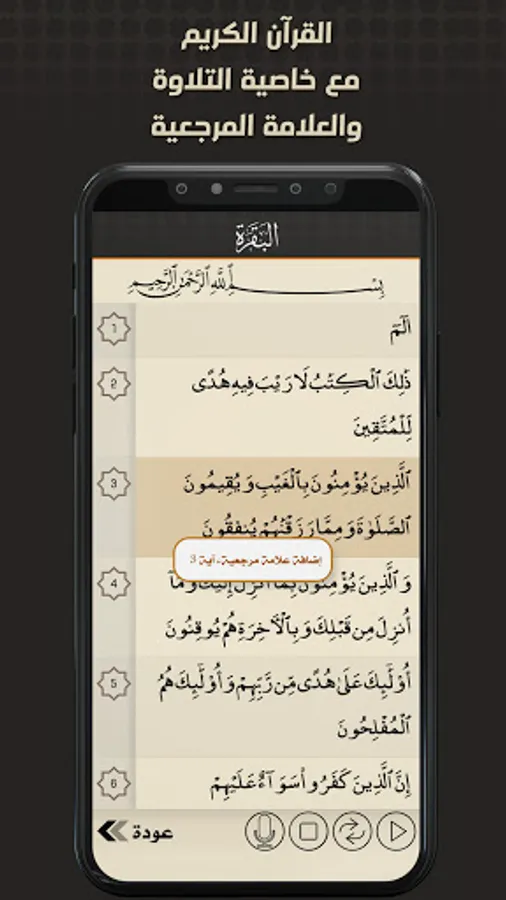 القرآن الكريم
مع خاصية التلاوة
والعلامة المرجعية
البَقَرَة
بِسْمِ ٱللَّهِ ٱلرَّحْمَٰنِ ٱلرَّحِيمِ
1
الٓمٓ
2
ذَٰلِكَ ٱلْكِتَٰبُ لَا رَيْبَ فِيهِ هُدًى
لِّلْمُتَّقِينَ
3
ٱلَّذِينَ يُؤْمِنُونَ بِٱلْغَيْبِ وَيُقِيمُونَ
ٱلصَّلَوٰةَ وَمِمَّا رَزَقْنَٰهُمْ يُنفِقُونَ
إضافة علامة مرجعية، آية 3
4
وَٱلَّذِينَ يُؤْمِنُونَ بِمَآ أُنزِلَ إِلَيْكَ وَمَآ
أُنزِلَ مِن قَبْلِكَ وَبِٱلْءَاخِرَةِ هُمْ يُوقِنُونَ
5
أُوْلَٰٓئِكَ عَلَىٰ هُدًى مِّن رَّبِّهِمْ وَأُوْلَٰٓئِكَ هُمُ
ٱلْمُفْلِحُونَ
6
إِنَّ ٱلَّذِينَ كَفَرُوا۟ سَوَآءٌ عَلَيْهِمْ
عودة